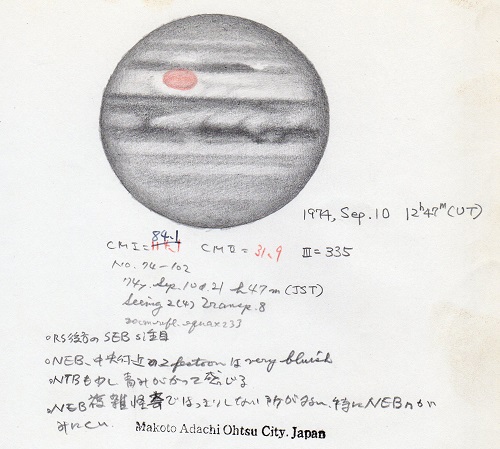 1974, Sep. 10 12h47m (UT)
84.1
CM I = CM II = 31.9 III = 335
No. 74-102
74y. Sep. 10d. 21h47m (JST)
Seeing 2(4) Transp. 8
233
○RS後方のSEB
○NEB、中央付近の2 festoonはvery bluish
○NTBも少し青みがかって感じる
○NEB複雑怪奇ではっきりしない所がある、特にNEB
みにくい
Makoto Adachi Ohtsu City. Japan